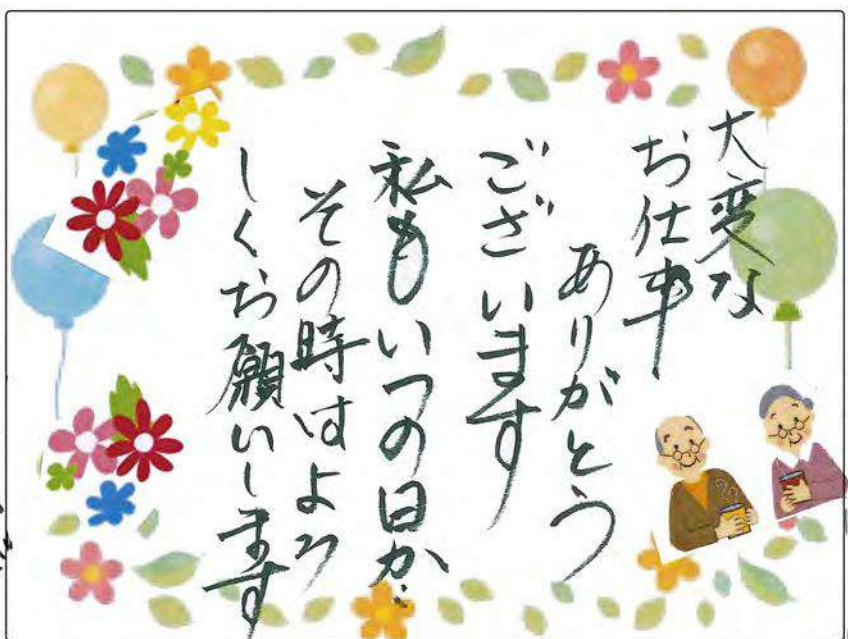 大変な
お仕事
ありがとう
ございます
私もいつの日か…
その時はよろ
しくお願いします